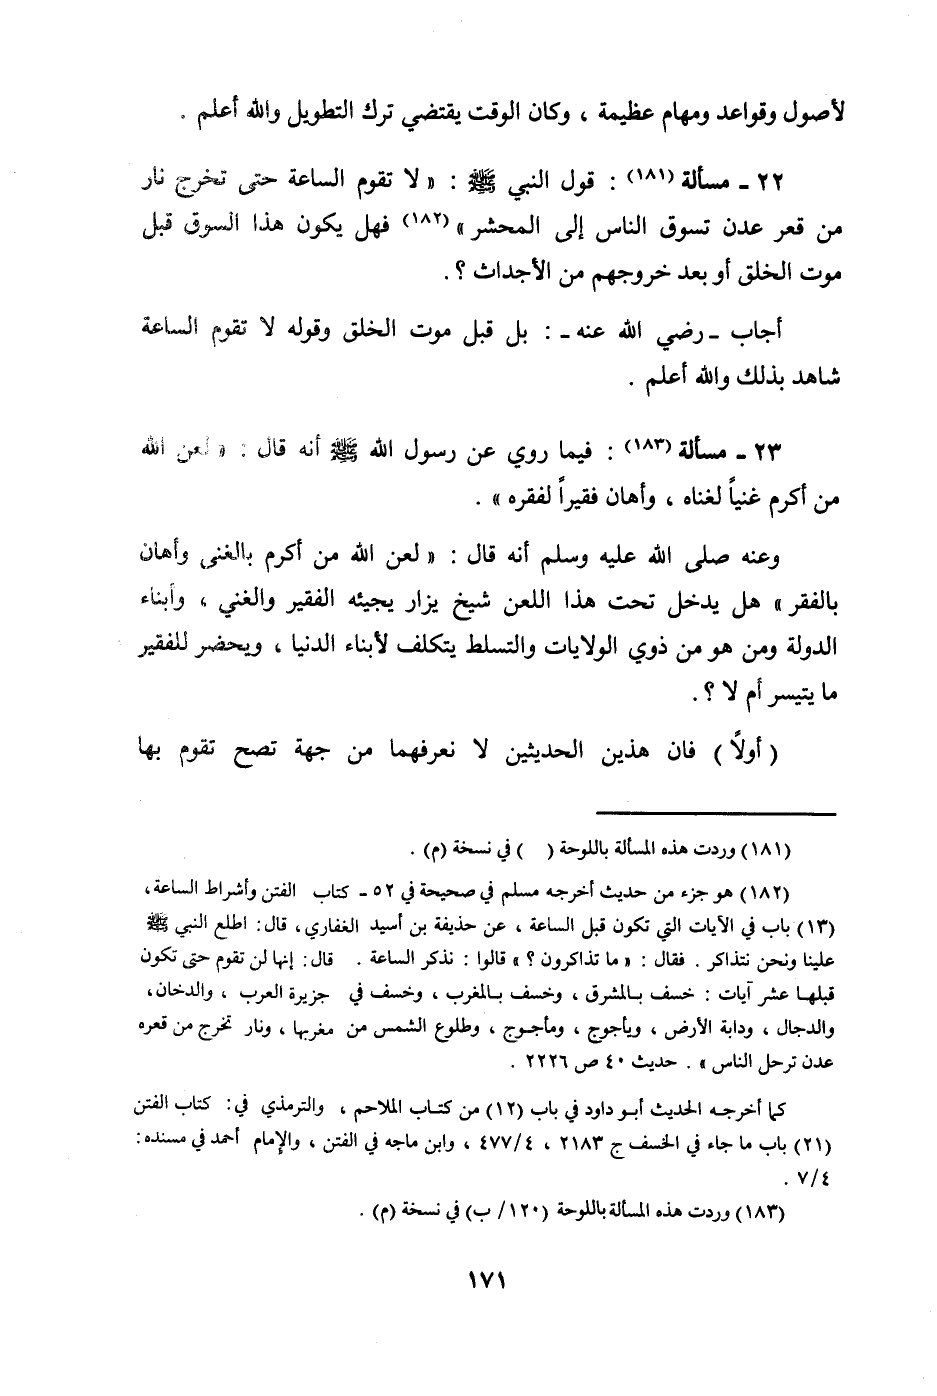 لأصول وقواعد ومهام عظيمة ، وكان الوقت يقتضي ترك التطويل والله أعلم .
٢٢ ـ مسألة (١٨١) : قول النبي ﷺ : « لا تقوم الساعة حتى تخرج نار
من قعر عدن تسوق الناس إلى المحشر » (١٨٢) فهل يكون هذا السوق قبل
موت الخلق أو بعد خروجهم من الأجداث ؟ .
أجاب ـ رضي الله عنه ـ : بل قبل موت الخلق وقوله لا تقوم الساعة
شاهد بذلك والله أعلم .
٢٣ ـ مسألة (١٨٣) : فيما روي عن رسول الله ﷺ أنه قال : « لعن الله
من أكرم غنياً لغناه ، وأهان فقيراً لفقره » .
وعنه صلى الله عليه وسلم أنه قال : « لعن الله من أكرم بالغنى وأهان
بالفقر » هل يدخل تحت هذا اللعن شيخ يزار يجيئه الفقير والغني ، وأبناء
الدولة ومن هو من ذوي الولايات والتسلط يتكلف لأبناء الدنيا ، ويحضر للفقير
ما يتيسر أم لا ؟ .
( أولاً ) فان هذين الحديثين لا نعرفهما من جهة تصح تقوم بها
(١٨١) وردت هذه المسألة باللوحة (   ) في نسخة (م) .
(١٨٢) هو جزء من حديث أخرجه مسلم في صحيحة في ٥٢ ـ كتاب الفتن وأشراط الساعة ،
(١٣) باب في الآيات التي تكون قبل الساعة ، عن حذيفة بن أسيد الغفاري ، قال : اطلع النبي ﷺ
علينا ونحن نتذاكر . فقال : « ما تذاكرون ؟ » قالوا : نذكر الساعة . قال : إنها لن تقوم حتى تكون
قبلها عشر آيات : خسف بالمشرق ، وخسف بالمغرب ، وخسف في جزيرة العرب ، والدخان ،
والدجال ، ودابة الأرض ، ويأجوج ، ومأجوج ، وطلوع الشمس من مغربها ، ونار تخرج من قعره
عدن ترحل الناس » . حديث ٤٠ ص ٢٢٢٦ .
كما أخرجه الحديث أبو داود في باب (١٢) من كتاب الملاحم ، والترمذي في : كتاب الفتن
(٢١) باب ما جاء في الخسف ج ٢١٨٣ ، ٤٧٧/٤ ، وابن ماجه في الفتن ، والإمام أحمد في مسنده :
٧/٤ .
(١٨٣) وردت هذه المسألة باللوحة (١٢٠/ ب) في نسخة (م) .
١٧١